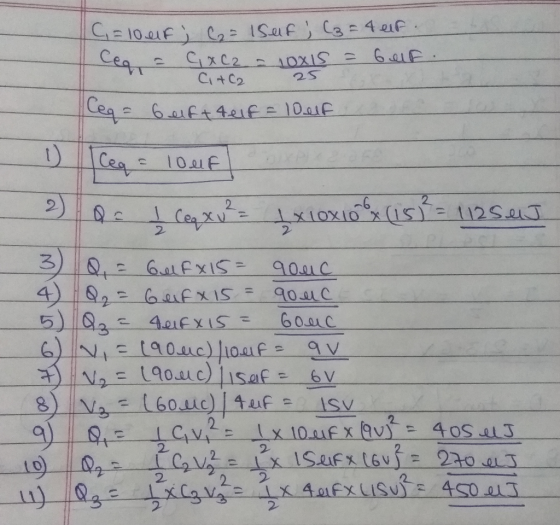 C₁=10μF ; C₂= 15μF ; C₃= 4μF.
Ceq₁ = C₁×C₂/C₁+C₂ = 10×15/25 = 6μF.
Ceq = 6μF+4μF = 10μF
1) Ceq = 10μF
2) Q = 1/2 Ceq×V² = 1/2×10×10⁻⁶×(15)² = 1125μJ
3) Q₁ = 6μF×15 = 90μC
4) Q₂ = 6μF×15 = 90μC
5) Q₃ = 4μF×15 = 60μC
6) V₁ = (90μC)/10μF = 9V
7) V₂ = (90μC)/15μF = 6V
8) V₃ = (60μC)/4μF = 15V
9) Q₁ = 1/2 C₁V₁² = 1/2 × 10μF×(9V)² = 405μJ
10) Q₂ = 1/2 C₂V₂² = 1/2 × 15μF×(6V)² = 270μJ
11) Q₃ = 1/2×C₃V₃² = 1/2 × 4μF×(15V)² = 450μJ